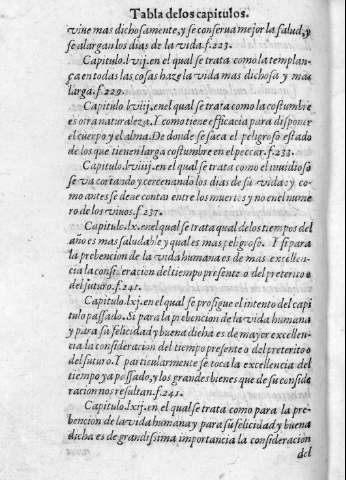 Tabla delos capitulos.
viue mas dichosamente, y se conserua mejor la salud, y
se alargan los dias de la vida. f.223.
Capitulo. lvij. en el qual se trata como la templan-
ça en todas las cosas haze la vida mas dichosa y mas
larga. f.229.
Capitulo. lviij. en el qual se trata como la costumbre
es otra naturaleza. I como tiene efficacia para disponer
el cuerpo y el alma. De donde se saca el peligroso estado
de los que tienen larga costumbre en el peccar. f.233.
Capitulo. lviiij. en el qual se trata como el inuidioso
se va cortando y cercenando los dias de su vida: y co-
mo antes se deue contar entre los muertos y no en el nume
ro de los viuos. f.237.
Capitulo. lx. en el qual se trata qual de los tiempos del
año es mas saludable y qual es mas peligroso. I si para
la prebencion de la vida humana es de mas excellen-
cia la consideracion del tiempo presente o del preterito o
del futuro. f.241.
Capitulo. lxj. en el qual se prosigue el intento del capi
tulo passado. Si para la prebencion de la vida humana
y para su felicidad y buena dicha es de mayor excellen-
cia la consideracion del tiempo presente o del preterito o
del futuro. I particularmente se toca la excellencia del
tiempo ya passado, y los grandes bienes que de su conside
racion nos resultan. f.245.
Capitulo. lxij. en el qual se trata como para la pre-
bencion de la vida humana y para su felicidad y buena
dicha es de grandissima importancia la consideracion
del